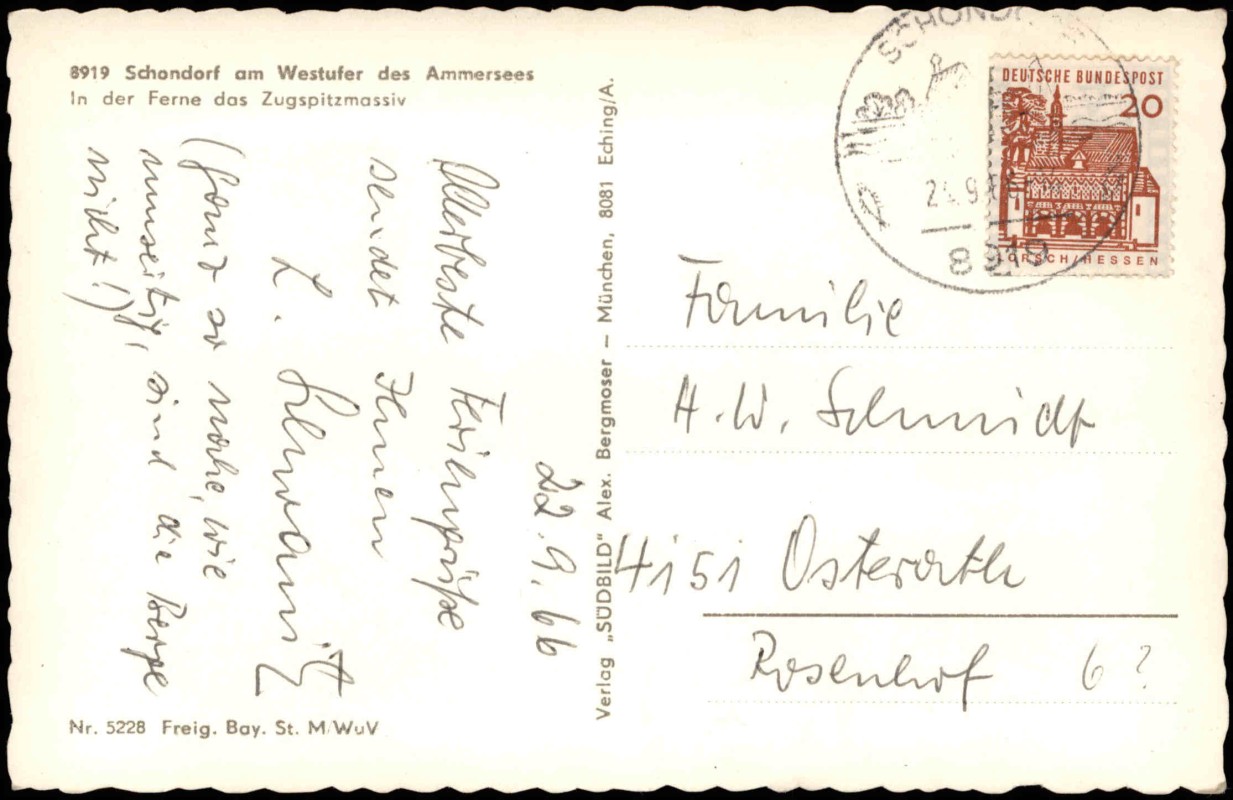 8919 Schondorf am Westufer des Ammersees
In der Ferne das Zugspitzmassiv
22.9.66
Allerbeste Feriengrüße
sendet Ihnen
L. Schwanitz
(Ganz so nahe, wie
umseitig, sind die Berge
nicht!)
Nr. 5228 Freig. Bay. St. M.WuV
Verlag „SÜDBILD“ Alex. Bergmoser — München, 8081 Eching/A.
DEUTSCHE BUNDESPOST
20
LORSCH/HESSEN
8919
Familie
H.W. Schmidt
4151 Osterath
Rosenhof 6?